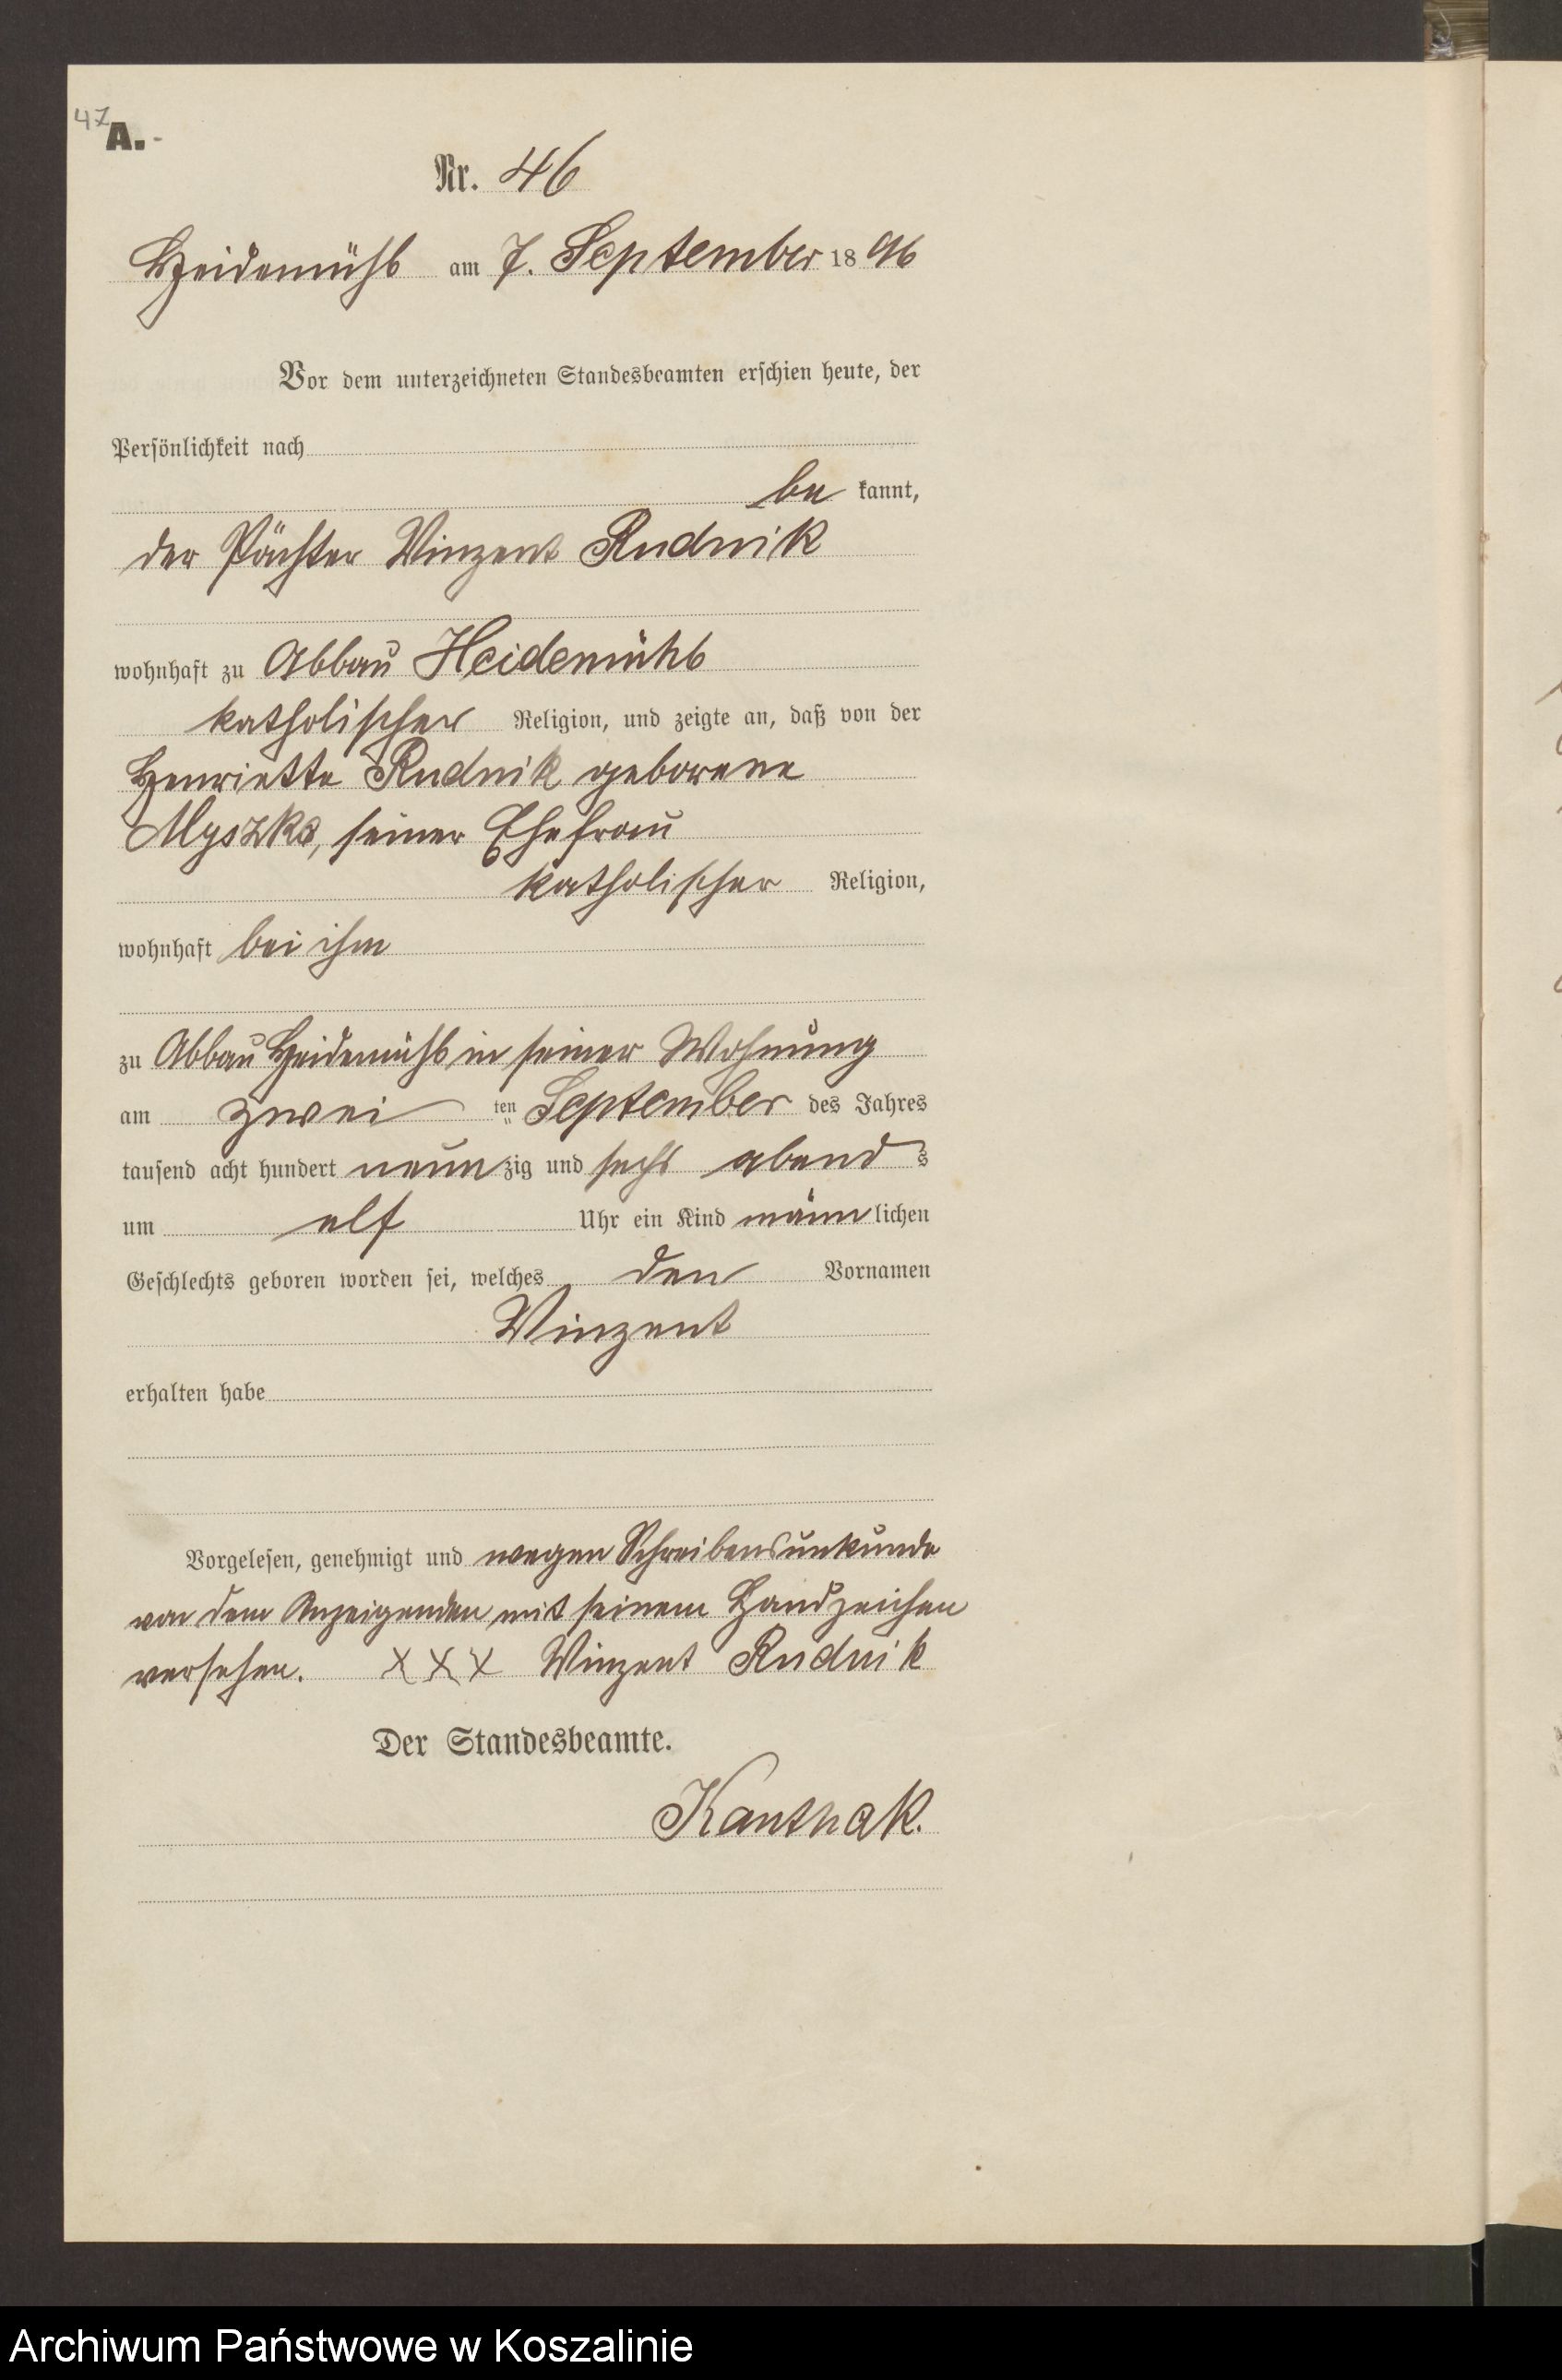 47
A.-
Nr. 46
Heidemühl am 7. September 1896
Vor dem unterzeichneten Standesbeamten erschien heute, der
Persönlichkeit nach
be kannt,
der Pächter Vinzent Rudnik
wohnhaft zu Abbau Heidemühl
katholischer Religion, und zeigte an, daß von der
Henriette Rudnik geborene
seiner Ehefrau
katholischer Religion,
wohnhaft bei ihm
zu Abbau Heidemühl in seiner Wohnung
am zwei ten September des Jahres
tausend acht hundert neun zig und sechs abend s
um elf Uhr ein Kind männ lichen
Geschlechts geboren worden sei, welches den Vornamen
Vinzent
erhalten habe
Vorgelesen, genehmigt und wegen Schreibensunkunde
von dem Anzeigenden mit seinem Handzeichen
versehen. XXX Vinzent Rudnik
Der Standesbeamte.
Kanthak.
Archiwum Państwowe w Koszalinie